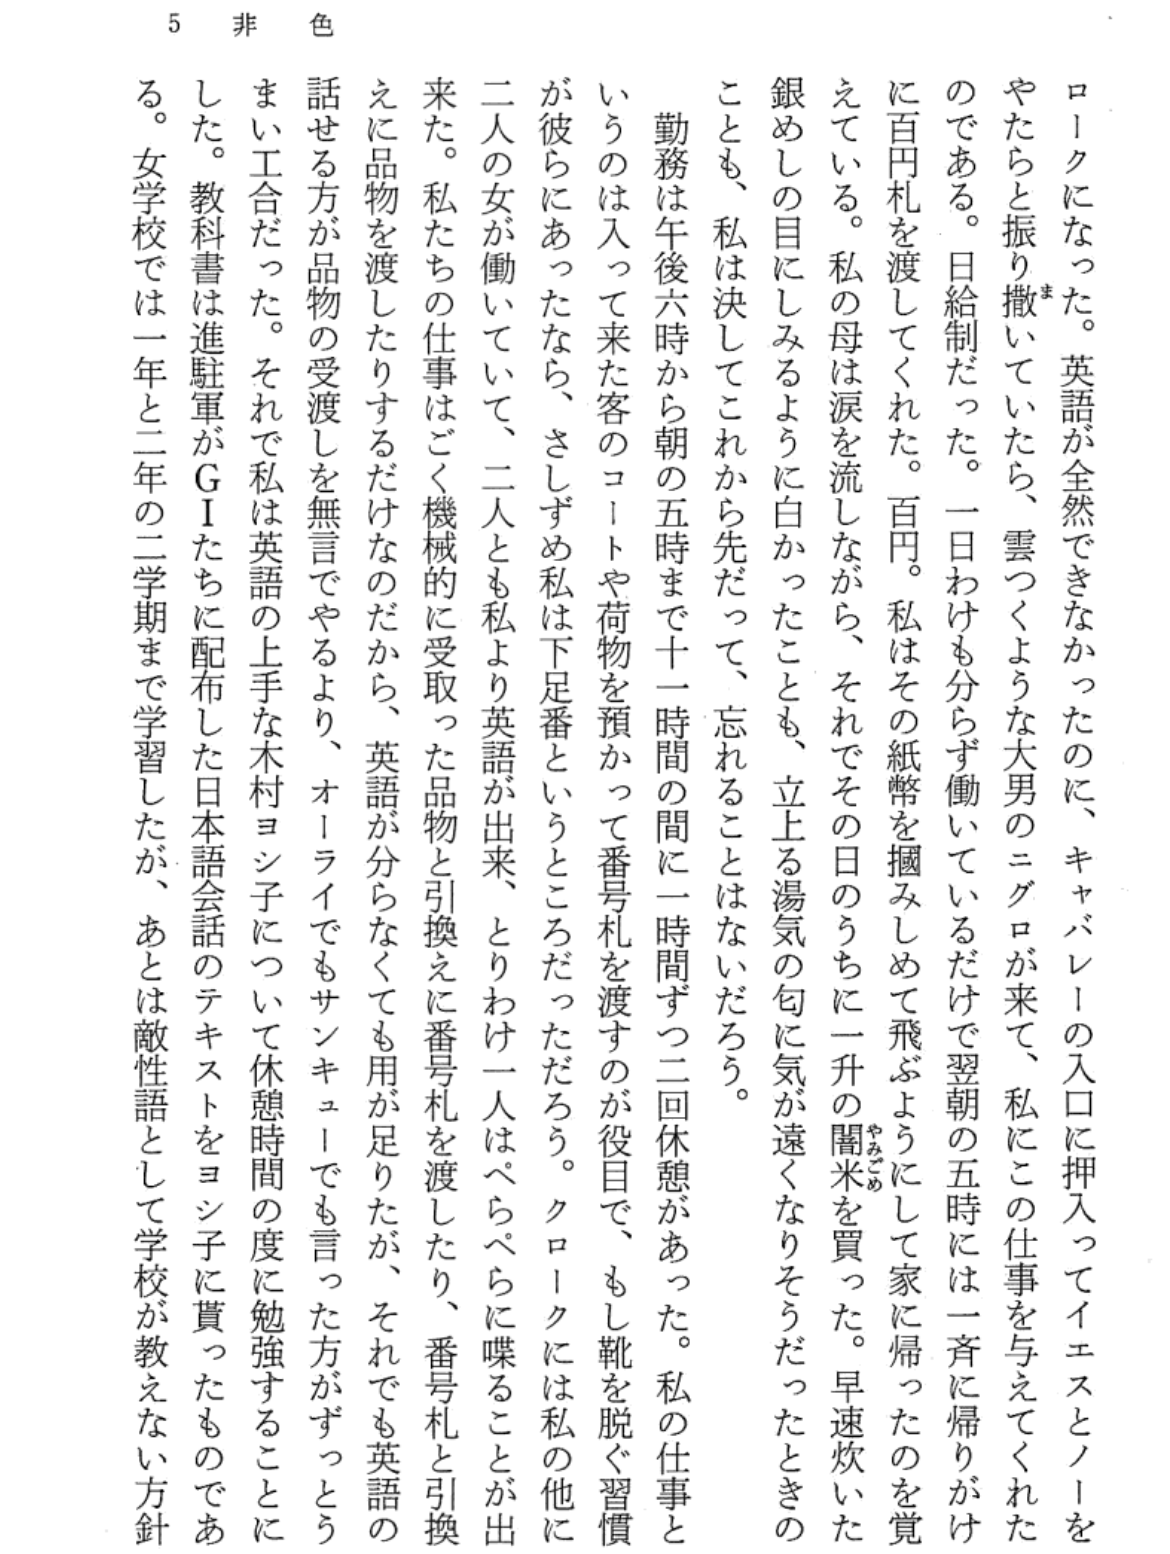 5 非色
ロークになった。英語が全然できなかったのに、キャバレーの入口に押入ってイエスとノーを
やたらと振り撒いていたら、雲つくような大男のニグロが来て、私にこの仕事を与えてくれた
のである。日給制だった。一日わけも分らず働いているだけで翌朝の五時には一斉に帰りがけ
に百円札を渡してくれた。百円。私はその紙幣を摑みしめて飛ぶようにして家に帰ったのを覚
えている。私の母は涙を流しながら、それでその日のうちに一升の闇米を買った。早速炊いた
銀めしの目にしみるように白かったことも、立上る湯気の匂に気が遠くなりそうだったときの
ことも、私は決してこれから先だって、忘れることはないだろう。
勤務は午後六時から朝の五時まで十一時間の間に一時間ずつ二回休憩があった。私の仕事と
いうのは入って来た客のコートや荷物を預かって番号札を渡すのが役目で、もし靴を脱ぐ習慣
が彼らにあったなら、さしずめ私は下足番というところだっただろう。クロークには私の他に
二人の女が働いていて、二人とも私より英語が出来、とりわけ一人はぺらぺらに喋ることが出
来た。私たちの仕事はごく機械的に受取った品物と引換えに番号札を渡したり、番号札と引換
えに品物を渡したりするだけなのだから、英語が分らなくても用が足りたが、それでも英語の
話せる方が品物の受渡しを無言でやるより、オーライでもサンキューでも言った方がずっとう
まい工合だった。それで私は英語の上手な木村ヨシ子について休憩時間の度に勉強することに
した。教科書は進駐軍がGIたちに配布した日本語会話のテキストをヨシ子に貰ったものであ
る。女学校では一年と二年の二学期まで学習したが、あとは敵性語として学校が教えない方針